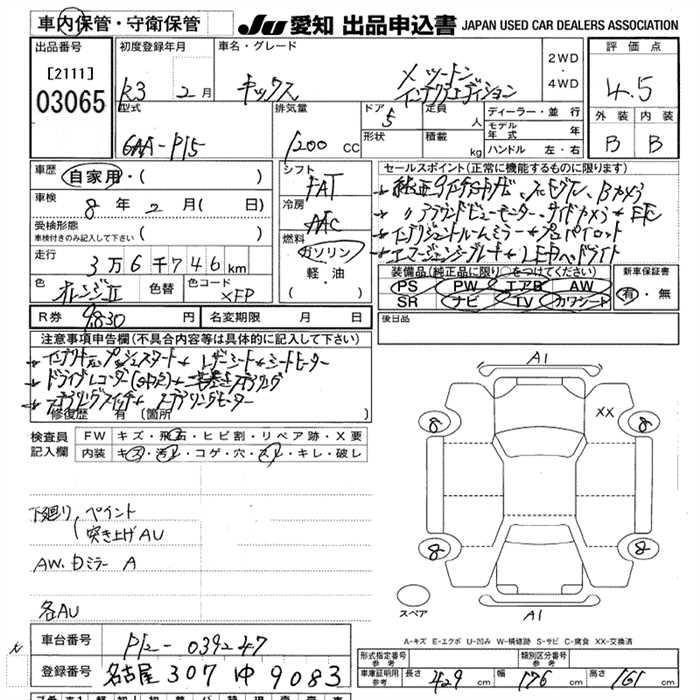 車内保管・守衛保管
JU 愛知 出品申込書 JAPAN USED CAR DEALERS ASSOCIATION
出品番号
[2111]
03065
初度登録年月
R3 2月
車名・グレード
キックス
ツートン
インテリアエディション
2WD
・
4WD
評価点
4.5
外装 内装
B B
型式
6AA-P15
排気量
1200 CC
ドア 5
定員 人
形状
積載 kg
ディーラー・並行
モデル年式 年
ハンドル 左・右
車歴
自家用・( )
車検
8年2月( 日)
受検形態
車検付きのみ記入して下さい ( )
走行
3万6千746km
色
オレンジⅡ
色替
色コード
XFP
シフト
FAT
冷房
AAC
燃料
ガソリン
軽・油
( )
セールスポイント(正常に機能するものに限ります)
アラウンドビューモニター
ETC
インテリジェントルームミラー プロパイロット
エマージェンシーブレーキ LEDヘッドライト
装備品(純正品に限り○をつけてください)
PS PW エアB AW
SR ナビ TV カワシート
新車保証書
有・無
R券 9830 円
名変期限 月 日
後日品
注意事項申告欄(不具合内容等は具体的に記入して下さい)
プッシュスタート レザーシート シートヒーター
ドライブレコーダー
ステアリングスイッチ ステアリングヒーター
修復歴 有 〔箇所 〕
検査員
記入欄
FW キズ・飛石・ヒビ割・リペア跡・X要
内装 キズ・汚レ・コゲ・穴・スレ・キレ・破レ
下廻り、ペイント
突き上げAU
AW、ドミラー A
各AU
A1
XX
8 8
8 8
スペア
A1
A-キズ E-エクボ U-凹み W-補修跡 S-サビ C-腐食 XX-交換済
車台番号
P15-039247
登録番号
名古屋 307 ゆ 9083
形式指定番号
参考
類別区分番号
参考
車庫証明用
参考
長さ 429 cm
幅 176 cm
高さ 161 cm